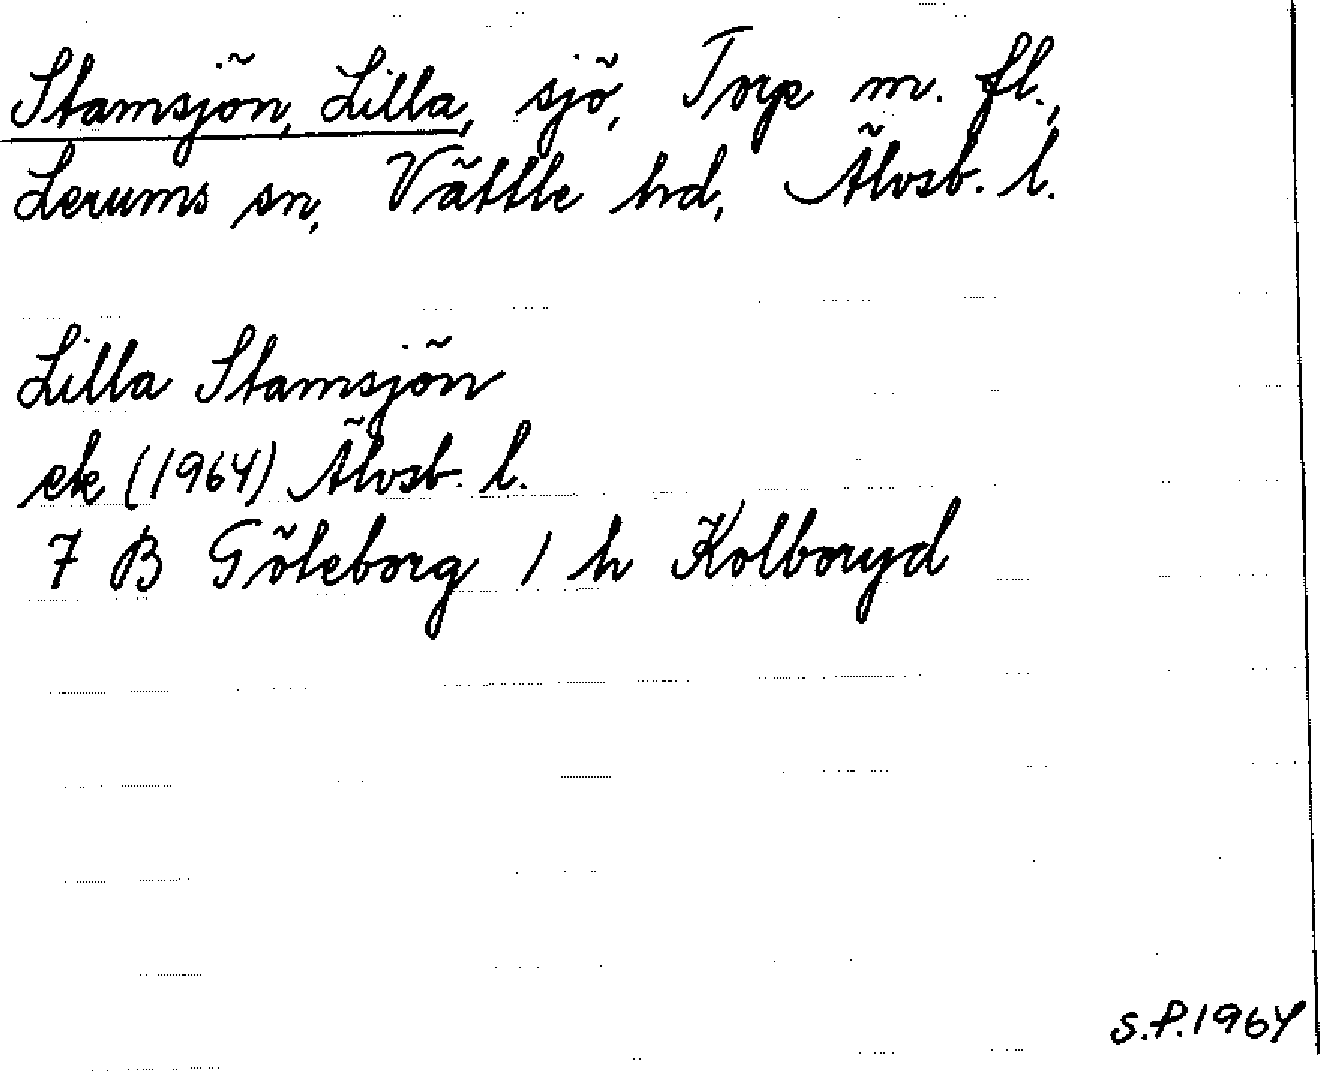 Stamsjön, Lilla, sjö, Torp m. fl.,
Lerums sn, Vättle hd, Älvsb. l.
Lilla Stamsjön
ek (1964) Älvsb. l.
7 B Göteborg 1 h Kolboryd
S.P. 1964